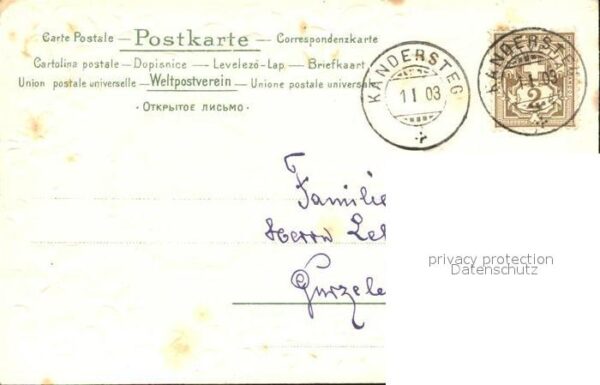 Carte Postale — Postkarte — Correspondenzkarte
Cartolina postale — Dopisnice — Levelező-Lap. — Briefkaart
Union postale universelle — Weltpostverein — Unione postale universa
· Открытое письмо ·
KANDERSTEG
1 I 03
KANDERSTEG
1 I 03
2
Familie
Herrn
Gurzele
privacy protection
Datenschutz